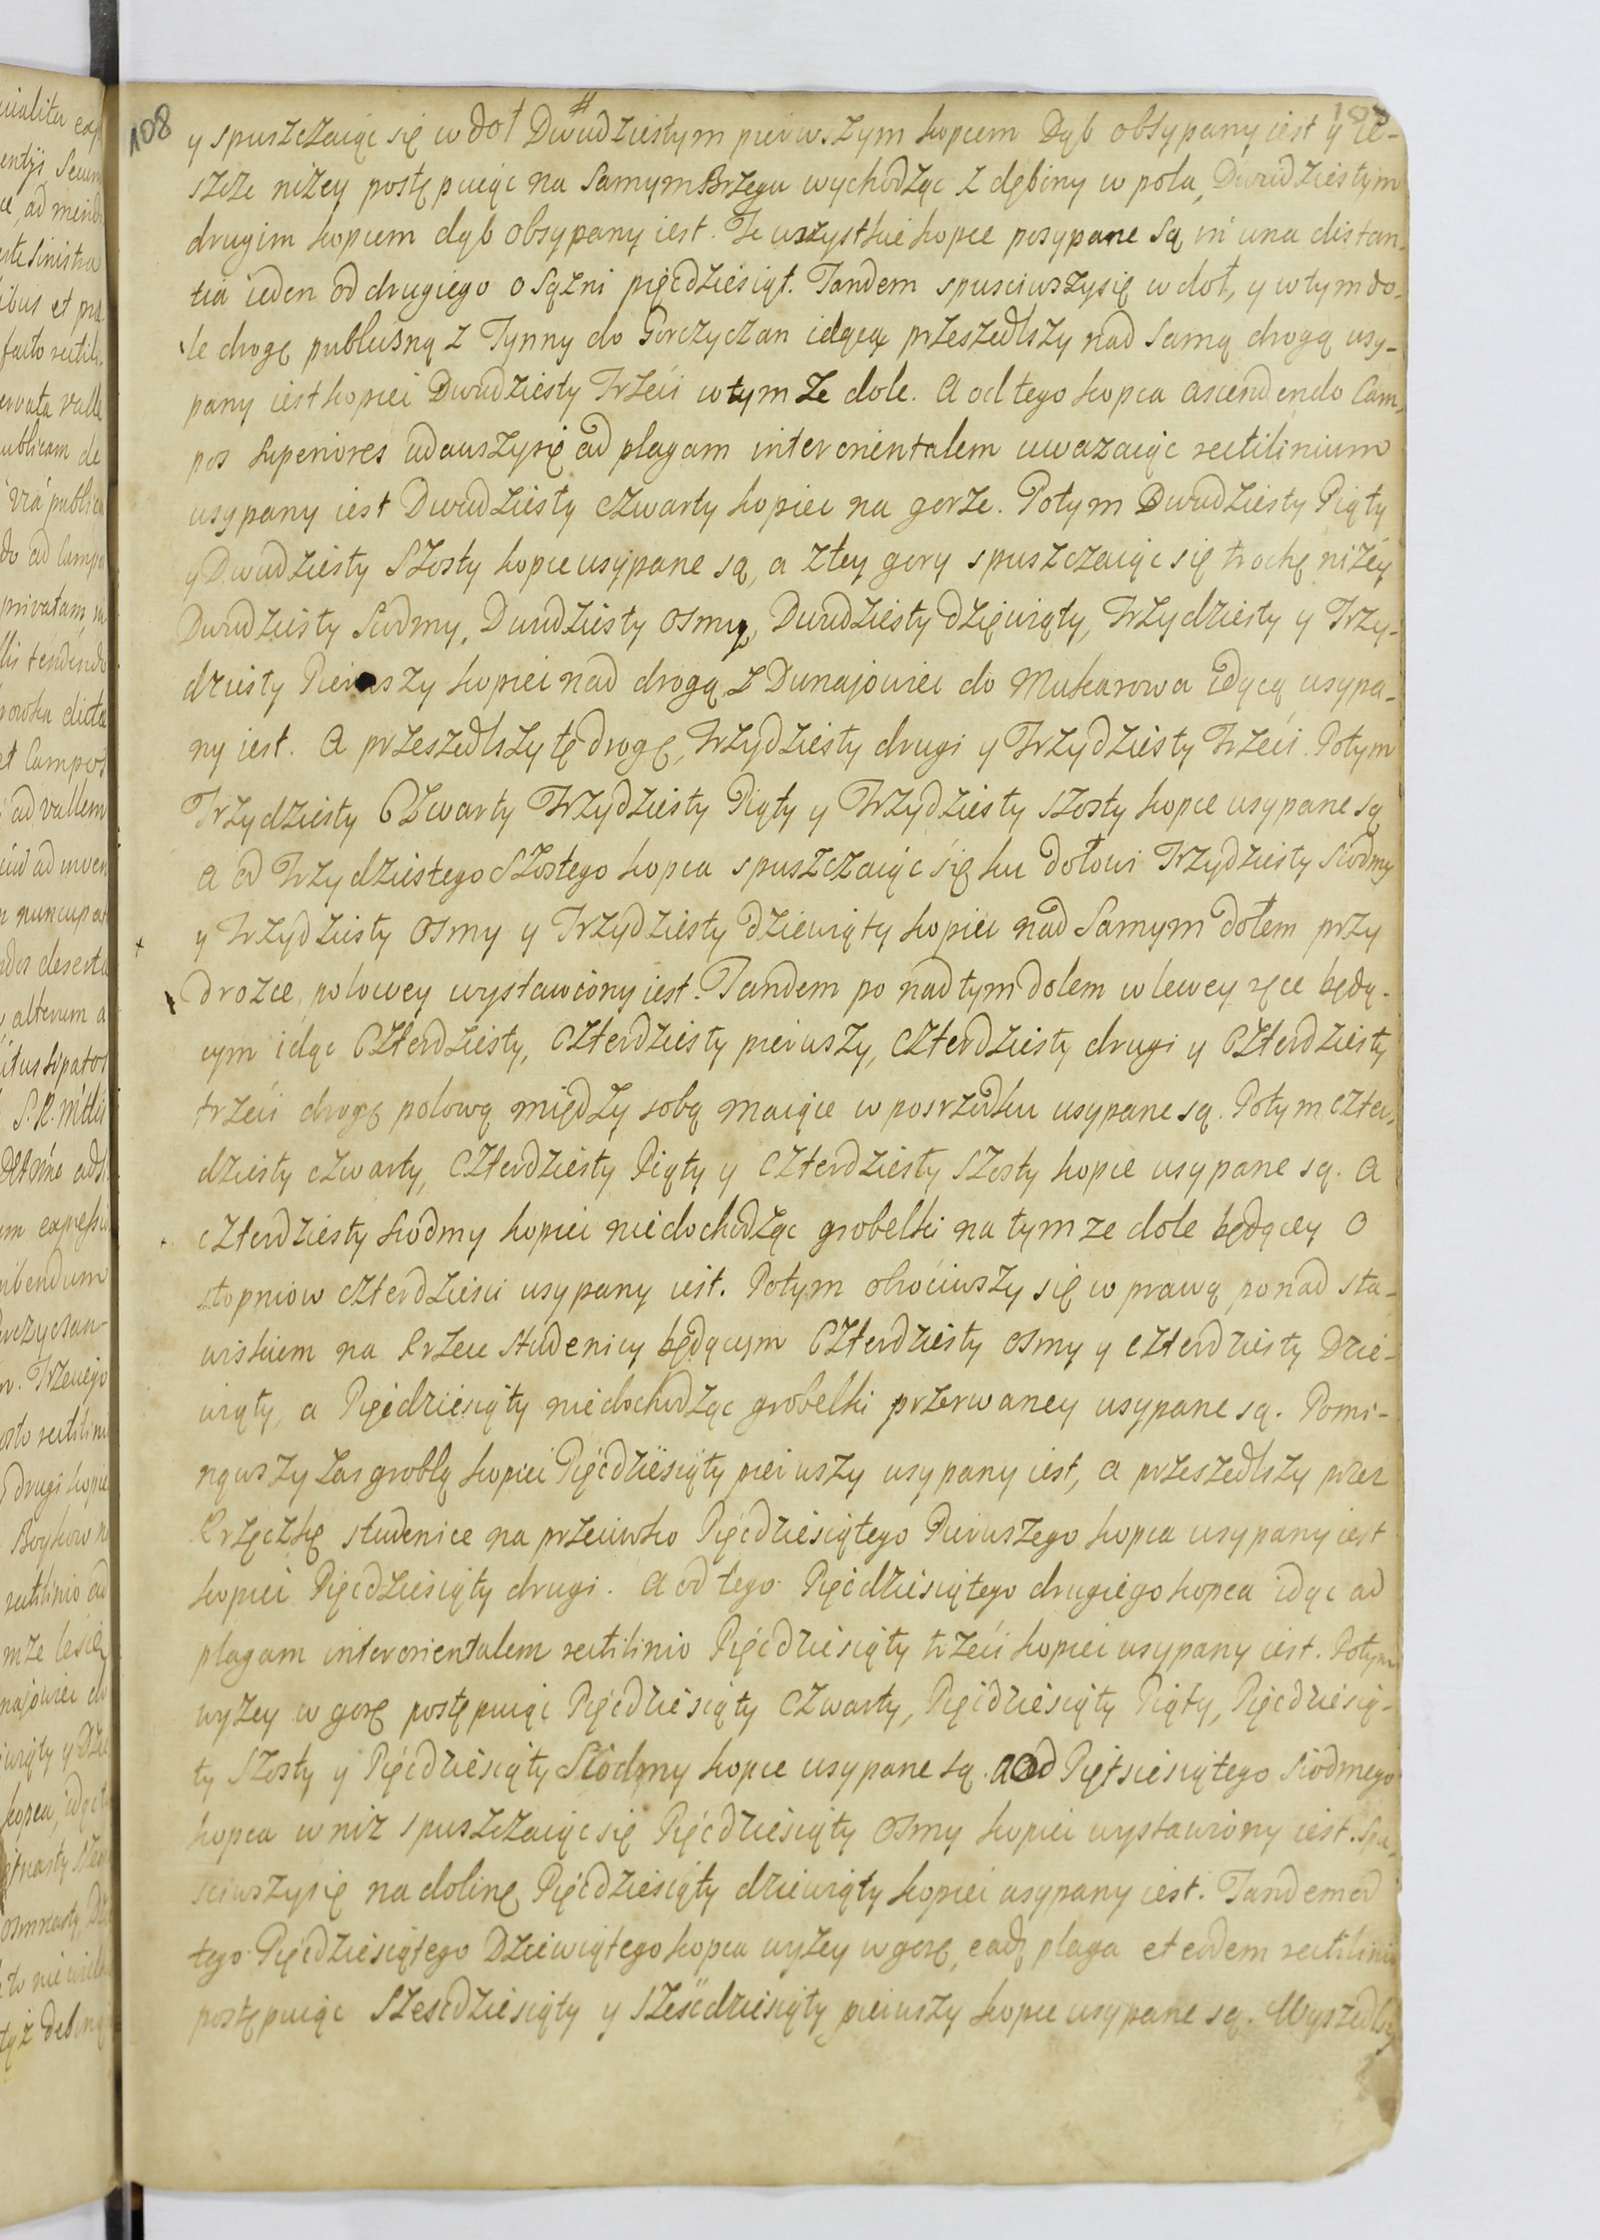 108
y spuszczaiąc się w doł Dwudziestym pierwszym kopcem Dąb obsypany iest y ie-
szcze niżey postępuiąc na Samym Brzegu wychodząc z dębiny w pola, Dwudziestym
drugim kopcem dąb obsypany iest. Te wszystkie kopce posypane Są in una distan-
tia ieden od drugiego o Sązni pięcdziesiąt. Tandem spusciwszysię w doł, y w tym do-
le drogę publiczną z Tynny do Gorczyczan idącą przeszedłszy nad Samą drogą usy-
pany iest kopiec Dwudziesty Trzeci w tym ze dole. A od tego kopca ascendendo Cam-
pos Superiores udawszysię ad plagam interorientalem uwazaiąc rectilinium
usypany iest Dwudziesty czwarty kopiec na gorze. Potym Dwudziesty Piąty
y Dwudziesty Szosty kopce usypane są, a z tey gory spuszczaiąc się trochę niżey
Dwudziesty Siodmy, Dwudziesty Osmy, Dwudziesty dziewiąty, Trzydziesty y Trzy-
dziesty Pierwszy kopiec nad drogą z Dunajowiec do Mukarowa idącą usypa-
ny iest. A przeszedłszy tę drogę, Trzydziesty drugi y Trzydziesty Trzeci. Potym
Trzydziesty Czwarty Trzydziesty Piąty y Trzydziesty szosty kopce usypane są
a od Trzydziestego Szostego kopca spuszczaiąc się ku dołowi Trzydziesty Siodmy
y Trzydziesty Osmy y Trzydziesty dziewiąty kopiec nad Samym dołem przy
drozce polowey wystawiony iest. Tandem po nad tym dołem w lewey ręce będą-
cym idąc Czterdziesty, Czterdziesty pierwszy, Czterdziesty drugi y Czterdziesty
trzeci drogę polową między sobą maiące w posrzodku usypane są. Potym czter-
dziesty czwarty, Czterdziesty Piąty y Czterdziesty Szosty kopce usypane są. A
czterdziesty siodmy kopiec niedochodząc grobelki na tym ze dole będącey o
stopniow czterdziesci usypany iest. Potym obrociwszy się w prawą ponad sta-
wiskiem na Rzece Studenicy będącym Czterdziesty osmy y czterdziesty Dzie-
wiąty, a Pięcdziesiąty niedochodząc grobelki przerwaney usypane są. Pomi-
nąwszy zas groblą kopiec Pięcdziesiąty pierwszy usypany iest, a przeszedłszy przez
Rzęczkę studenice na przeciwko Pięcdziesiątego Pierwszego kopca usypany iest
kopiec Pięcdziesiąty drugi. A od tego Pięcdziesiątego drugiego kopca idąc ad
plagam interorientalem rectilinio Pięcdziesiąty trzeci kopiec usypany iest. Potym
wyzey w gorę postępuiąc Pięcdziesiąty czwarty, Pięcdziesiąty Piąty, Pięcdziesią-
ty Szosty y Pięcdziesiąty Siodmy kopce usypane są. A od Piętsiesiątego Siodmego
kopca w niz spuszczaiąc się Pięcdziesiąty Osmy kopiec wystawiony iest. Spu-
sciwszysię na dolinę Pięcdziesiąty dziewiąty kopiec usypany iest. Tandem od
tego Pięcdziesiątego Dziewiątego kopca wyżey w gorę, eadę plaga et eodem rectilinio
postępuiąc Szescdziesiąty y Szescdziesiąty pierwszy kopce usypane są. Wyszedłszy